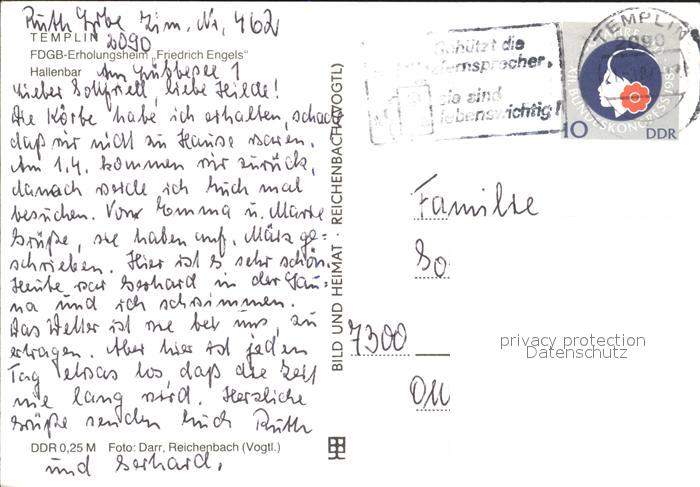 Ruth Gröbe Zim. Nr. 462
TEMPLIN 2090
FDGB-Erholungsheim „Friedrich Engels“
Hallenbar Am Lübbesee 1
Lieber Gottfried, liebe Heilde!
Die Körbe habe ich erhalten, schade
daß wir nicht zu Hause waren.
Am 1.4. kommen wir zurück,
danach werde ich Euch mal
besuchen. Von Emma u. Marie
Grüße, sie haben anf. März ge-
schrieben. Hier ist es sehr schön.
Heute war Gerhard in der Sau-
na und ich schwimmen.
Das Wetter ist wie bei uns, zu
ertragen. Aber hier ist jeden
Tag etwas los, daß die Zeit
nie lang wird. Herzliche
Grüße senden Euch Ruth
DDR 0,25 M Foto: Darr, Reichenbach (Vogtl.)
und Gerhard.
BILD UND HEIMAT · REICHENBACH (VOGTL)
Schützt die
Fernsprecher,
sie sind
lebenswichtig!
TEMPLIN
2090
BUNDESKONGRESS
10 DDR
Familie
So
7300
privacy protection
Datenschutz